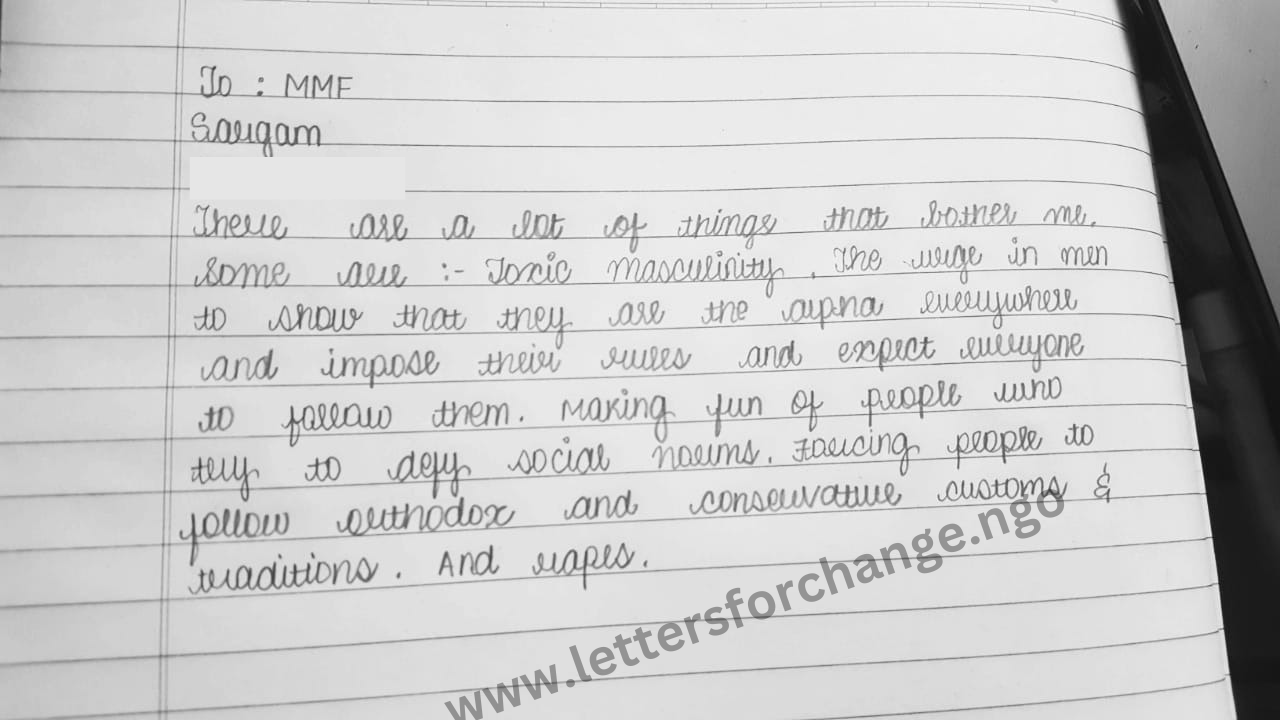 To : MMF
Sargam
There are a lot of things that bother me.
Some are :- Toxic masculinity. The urge in men
to show that they are the alpha everywhere
and impose their rules and expect everyone
to follow them. Making fun of people who
try to defy social norms. Forcing people to
follow orthodox and conservative customs &
traditions. And rapes.
www.lettersforchange.ngo